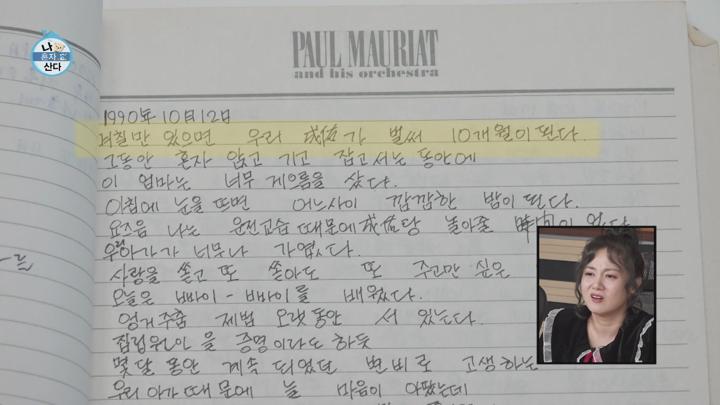 나
혼자
산다
PAUL MAURIAT
and his orchestra
1990年 10月 12日
며칠만 있으면 우리 成伍가 벌써 10개월이 된다.
그동안 혼자 앉고 기고 잡고서는 동안에
이 엄마는 너무 게으름을 샀다.
아침에 눈을 뜨면 어느사이 깜깜한 밤이 된다.
요즈음 나는 운전교습 때문에 成伍랑 놀아줄 時間이 없다
우리아가가 너무나 가엾다.
사랑을 쏟고 또 쏟아도 또 주고만 싶은
오늘은 빠이-빠이를 배웠다.
엉거주춤 제법 오랫동안 서 있는다.
직립원인 을 증명이라도 하듯
몇달 동안 계속 되었던 변비로 고생하는
우리 아가 때문에 늘 마음이 아팠는데